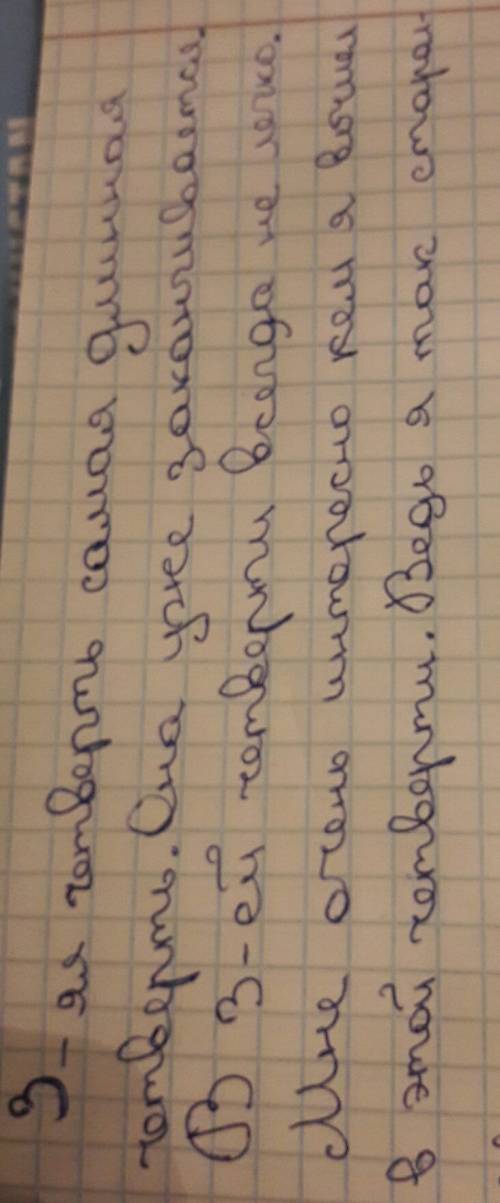 3-яя четверть самая длинная
четверть. Она уже заканчивается.
В 3-ей четверти всегда не легко.
Мне очень интересно кем я
в этой четверти. Ведь я так старал-